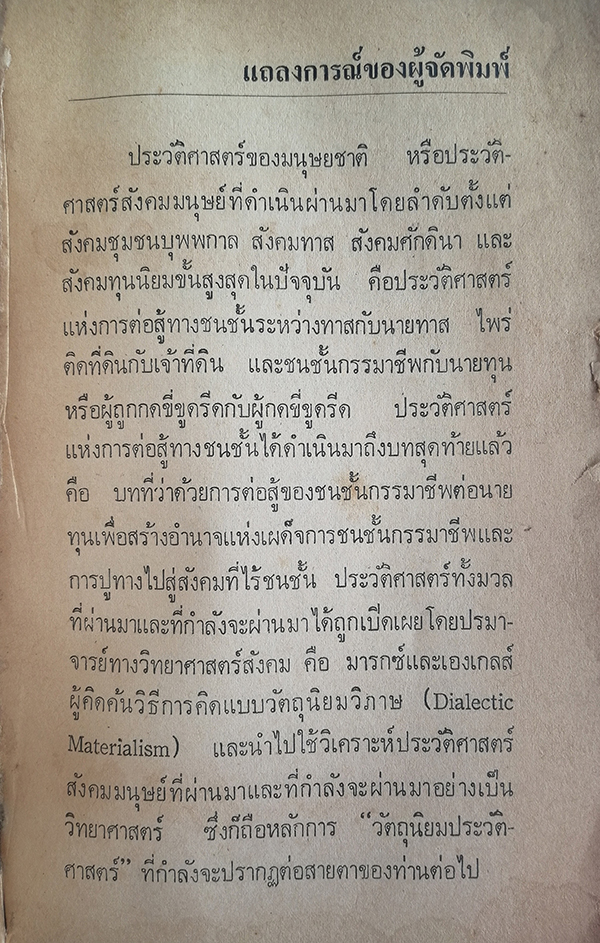 แถลงการณ์ของผู้จัดพิมพ์
ประวัติศาสตร์ของมนุษยชาติ หรือประวัติ-
ศาสตร์สังคมมนุษย์ที่ดำเนินผ่านมาโดยลำดับตั้งแต่
สังคมชุมชนบุพพกาล สังคมทาส สังคมศักดินา และ
สังคมทุนนิยมขั้นสูงสุดในปัจจุบัน คือประวัติศาสตร์
แห่งการต่อสู้ทางชนชั้นระหว่างทาสกับนายทาส ไพร่
ติดที่ดินกับเจ้าที่ดิน และชนชั้นกรรมาชีพกับนายทุน
หรือผู้ถูกกดขี่ขูดรีดกับผู้กดขี่ขูดรีด ประวัติศาสตร์
แห่งการต่อสู้ทางชนชั้นได้ดำเนินมาถึงบทสุดท้ายแล้ว
คือ บทที่ว่าด้วยการต่อสู้ของชนชั้นกรรมาชีพต่อนาย
ทุนเพื่อสร้างอำนาจแห่งเผด็จการชนชั้นกรรมาชีพและ
การปูทางไปสู่สังคมที่ไร้ชนชั้น ประวัติศาสตร์ทั้งมวล
ที่ผ่านมาและที่กำลังจะผ่านมาได้ถูกเปิดเผยโดยปรมา-
จารย์ทางวิทยาศาสตร์สังคม คือ มารกซ์และเองเกลส์
ผู้คิดค้นวิธีการคิดแบบวัตถุนิยมวิภาษ (Dialectic
Materialism) และนำไปใช้วิเคราะห์ประวัติศาสตร์
สังคมมนุษย์ที่ผ่านมาและที่กำลังจะผ่านมาอย่างเป็น
วิทยาศาสตร์ ซึ่งก็ถือหลักการ “วัตถุนิยมประวัติ-
ศาสตร์” ที่กำลังจะปรากฏต่อสายตาของท่านต่อไป